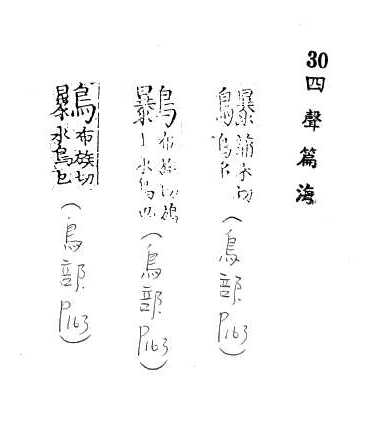 30四聲篇海
蒲木切
鳥名
（鳥部P163）
鸔布族切
水鳥也
（鳥部P163）
鸔布族切
水鳥也
（鳥部P163）